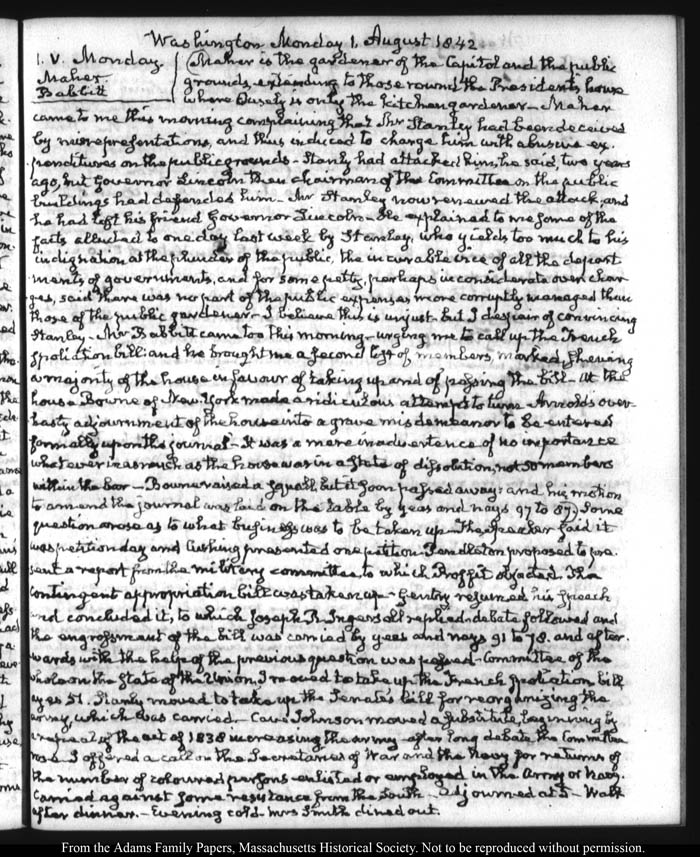 Washington Monday 1. August 1842.
1. V. Monday. Maher is the gardener of the Capitol and the public
Maher. grounds, extending to those round the Presidents house
Babbitt where Ousely is only the kitchen gardener - Maher
came to me this morning complaining that Mr Stanley had been deceived
by misrepresentations, and thus induced to charge him with abusive ex-
penditures on the public grounds - Stanly had attacked him, he said, two years
ago, but Governor Lincoln then chairman of the Committee on the public
buildings had defended him - Mr Stanley now renewed the attack, and
he had left his friend Governor Lincoln - He explained to me some of the
facts alluded to one day last week by Stanley, who yields too much to his
indignation at the plunder of the public, the incurable vice of all the depart
ments of governments, and for some petty, perhaps inconsiderate over char-
ges, said there was no part of the public expenses more corruptly managed than
those of the public gardener - I believe this is unjust - but I despair of convincing
Stanley - Mr Babbitt came too this morning - urging me to call up the French
spoliation bill: and he brought me a second list of members, marked, shewing
a majority of the house in favour of taking up and of passing the bill - At the
house Bowne of New York made a ridiculous attempt to turn Arnold's over-
hasty adjournment of the house into a grave misdemeanor to be entered
formally upon the journal - It was a mere inadvertence of no importance
whatever inasmuch as the house was in a state of dissolution, not 50 members
within the bar - Bowne raised a squall but it soon passed away: and his motion
to amend the journal was laid on the table by yeas and nays 97 to 87) Some
question arose as to what business was to be taken up - The Speaker said it
was petition day and Cushing presented one petition. Pendleton proposed to pre-
sent a report from the military committee, to which Proffit objected. The
contingent appropriation bill was taken up - Gentry resumed his speech
and concluded it, to which Joseph R. Ingersoll replied - debate followed and
the engrossment of the bill was carried by yeas and nays 91 to 78. and after-
wards with the help of the previous question was passed - Committee of the
whole on the State of the Union, I moved to take up the French spoliation bill
ayes 51. Stanly moved to take up the Senate's bill for reorganizing the
army which was carried - Cave Johnson moved a substitute, beginning by
repeal of the act of 1838 increasing the army - after long debate the Committee
rose - I offered a call on the Secretaries of War and the Navy for returns of
the number of coloured persons enlisted or employed in the Army or Navy.
carried against some resistance from the South - adjourned at 5 - Walk
after dinner - Evening cold - Mrs Smith dined out.
From the Adams Family Papers, Massachusetts Historical Society. Not to be reproduced without permission.